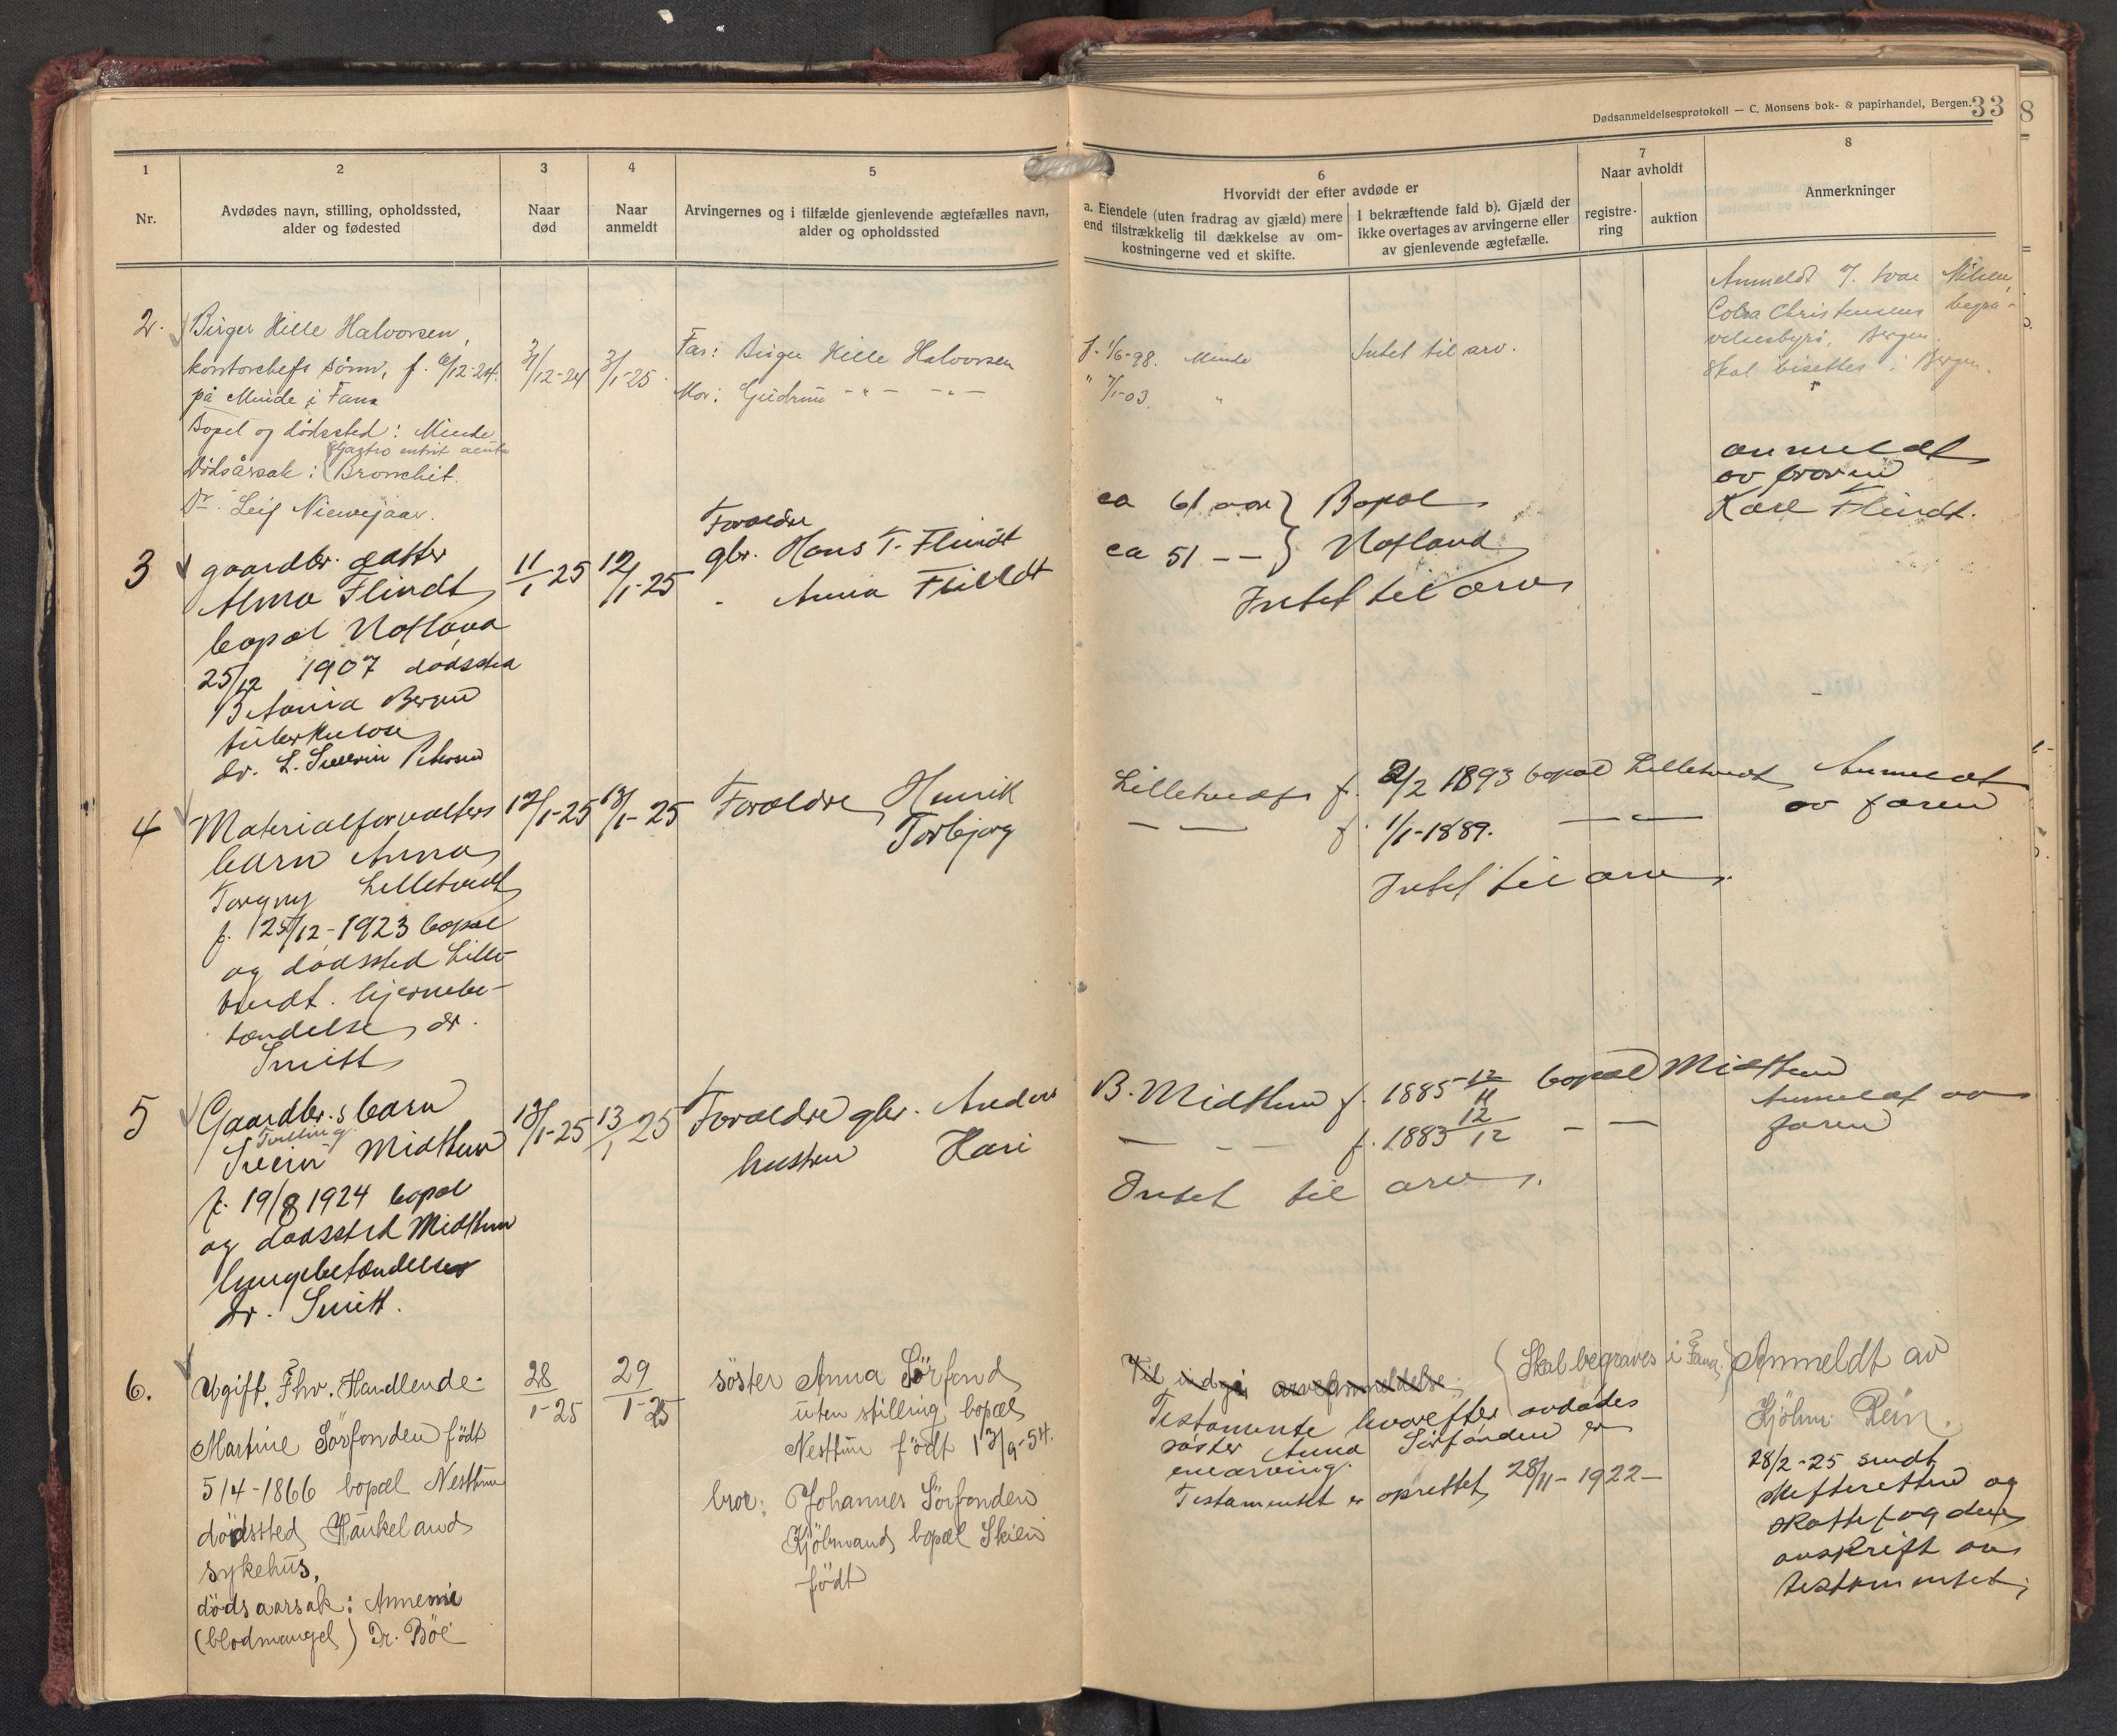 Dødsanmeldelsesprotokoll — C. Monsens bok- & papirhandel, Bergen.
33
8
1
Nr.
2
Avdødes navn, stilling, opholdssted,
alder og fødested
3
Naar
død
4
Naar
anmeldt
5
Arvingernes og i tilfælde gjenlevende ægtefælles navn,
alder og opholdssted
6
Hvorvidt der efter avdøde er
a. Eiendele (uten fradrag av gjæld) mere
end tilstrækkelig til dækkelse av om-
kostningerne ved et skifte.
I bekræftende fald b). Gjæld der
ikke overtages av arvingerne eller
av gjenlevende ægtefælle.
7
Naar avholdt
registre-
ring
auktion
8
Anmerkninger
2.
Birger Hille Halvorsen,
kontorchefs sönn, f. 6/12-24.
på Minde i Fana
Bopel og dödssted: Minde
Gastro enterit acuta
Dödsårsak: Bronchit.
Dr. Leif Nieuwejaar.
/12-24
3/1-25
Far: Birger Hille Halvorsen
Mor: Gudrun -"- -"-
f. 1/6-98. Minde
" 7/1-03. "
Intet til arv.
Anmeldt
Christensens begra-
velsesbyrå, Bergen.
Skal bisettes i Bergen.
3
gaardbr. datter
Alma Flindt
bopæl Hofland
25/12 1907 dødssted
Betania Bergen
tuberkulose
dr. L. Severin Petersen
11/1 25
12/1-25
Foraldre
gbr. Hans T. Flindt
" Anna Flindt
ca 61 aar } Bopæl
ca 51 — — } Hofland
Intet til arv
anmeldt
av broren
Kåre Flindt.
4
Materialforvalters
barn Anna
Torgny Lilletvedt
f. 25/12-1923 bopæl
og dødssted Lille-
tvedt. hjernebe-
tændelse, dr.
Smitt
12/1-25
13/1-25
Foraldre Henrik
Torbjørg
Lilletvedt f. 2/2 1893 bopæl Lilletvedt
— — f. 1/1-1889. — —
Intet til arv.
Anmeldt
av faren
5
Gaardbr.s barn
Tvilling
Svein Midttun
f. 19/8 1924 bopæl
og dødssted Midttun
lungebetændelse
dr. Smitt.
12/1-25
13/1 25
Foraldre gbr. Anders
hustru Kari
B. Midttun f. 1885 12/11 bopæl Midttun
— — f. 1883 12/12 — —
Intet til arv.
Anmeldt av
faren
6.
Ugift. Fhv. Handlende.
Martine Sörfonden födt
5/4-1866 bopæl Nesttun
dödssted Haukeland
sykehus,
dödsaarsak: Annemi
(blodmangel) Dr. Böe
28/1-25
29/1-25
söster Anna Sörfonden
uten stilling bopæl
Nesttun födt 13/9-54.
bror: Johannes Sörfonden
Kjöbmand bopæl Skien
födt
Til indgi arveanmeldelse.
(Skal begraves i Fana.)
Testamente hvorefter avdødes
søster Anna Sörfonden er
enearving.
Testamentet er oprettet 28/11-1922—
Anmeldt av
Kjöbm. Rein.
28/2-25 sendt
skifteretten og
skattefogden
avskrift av
testamentet,